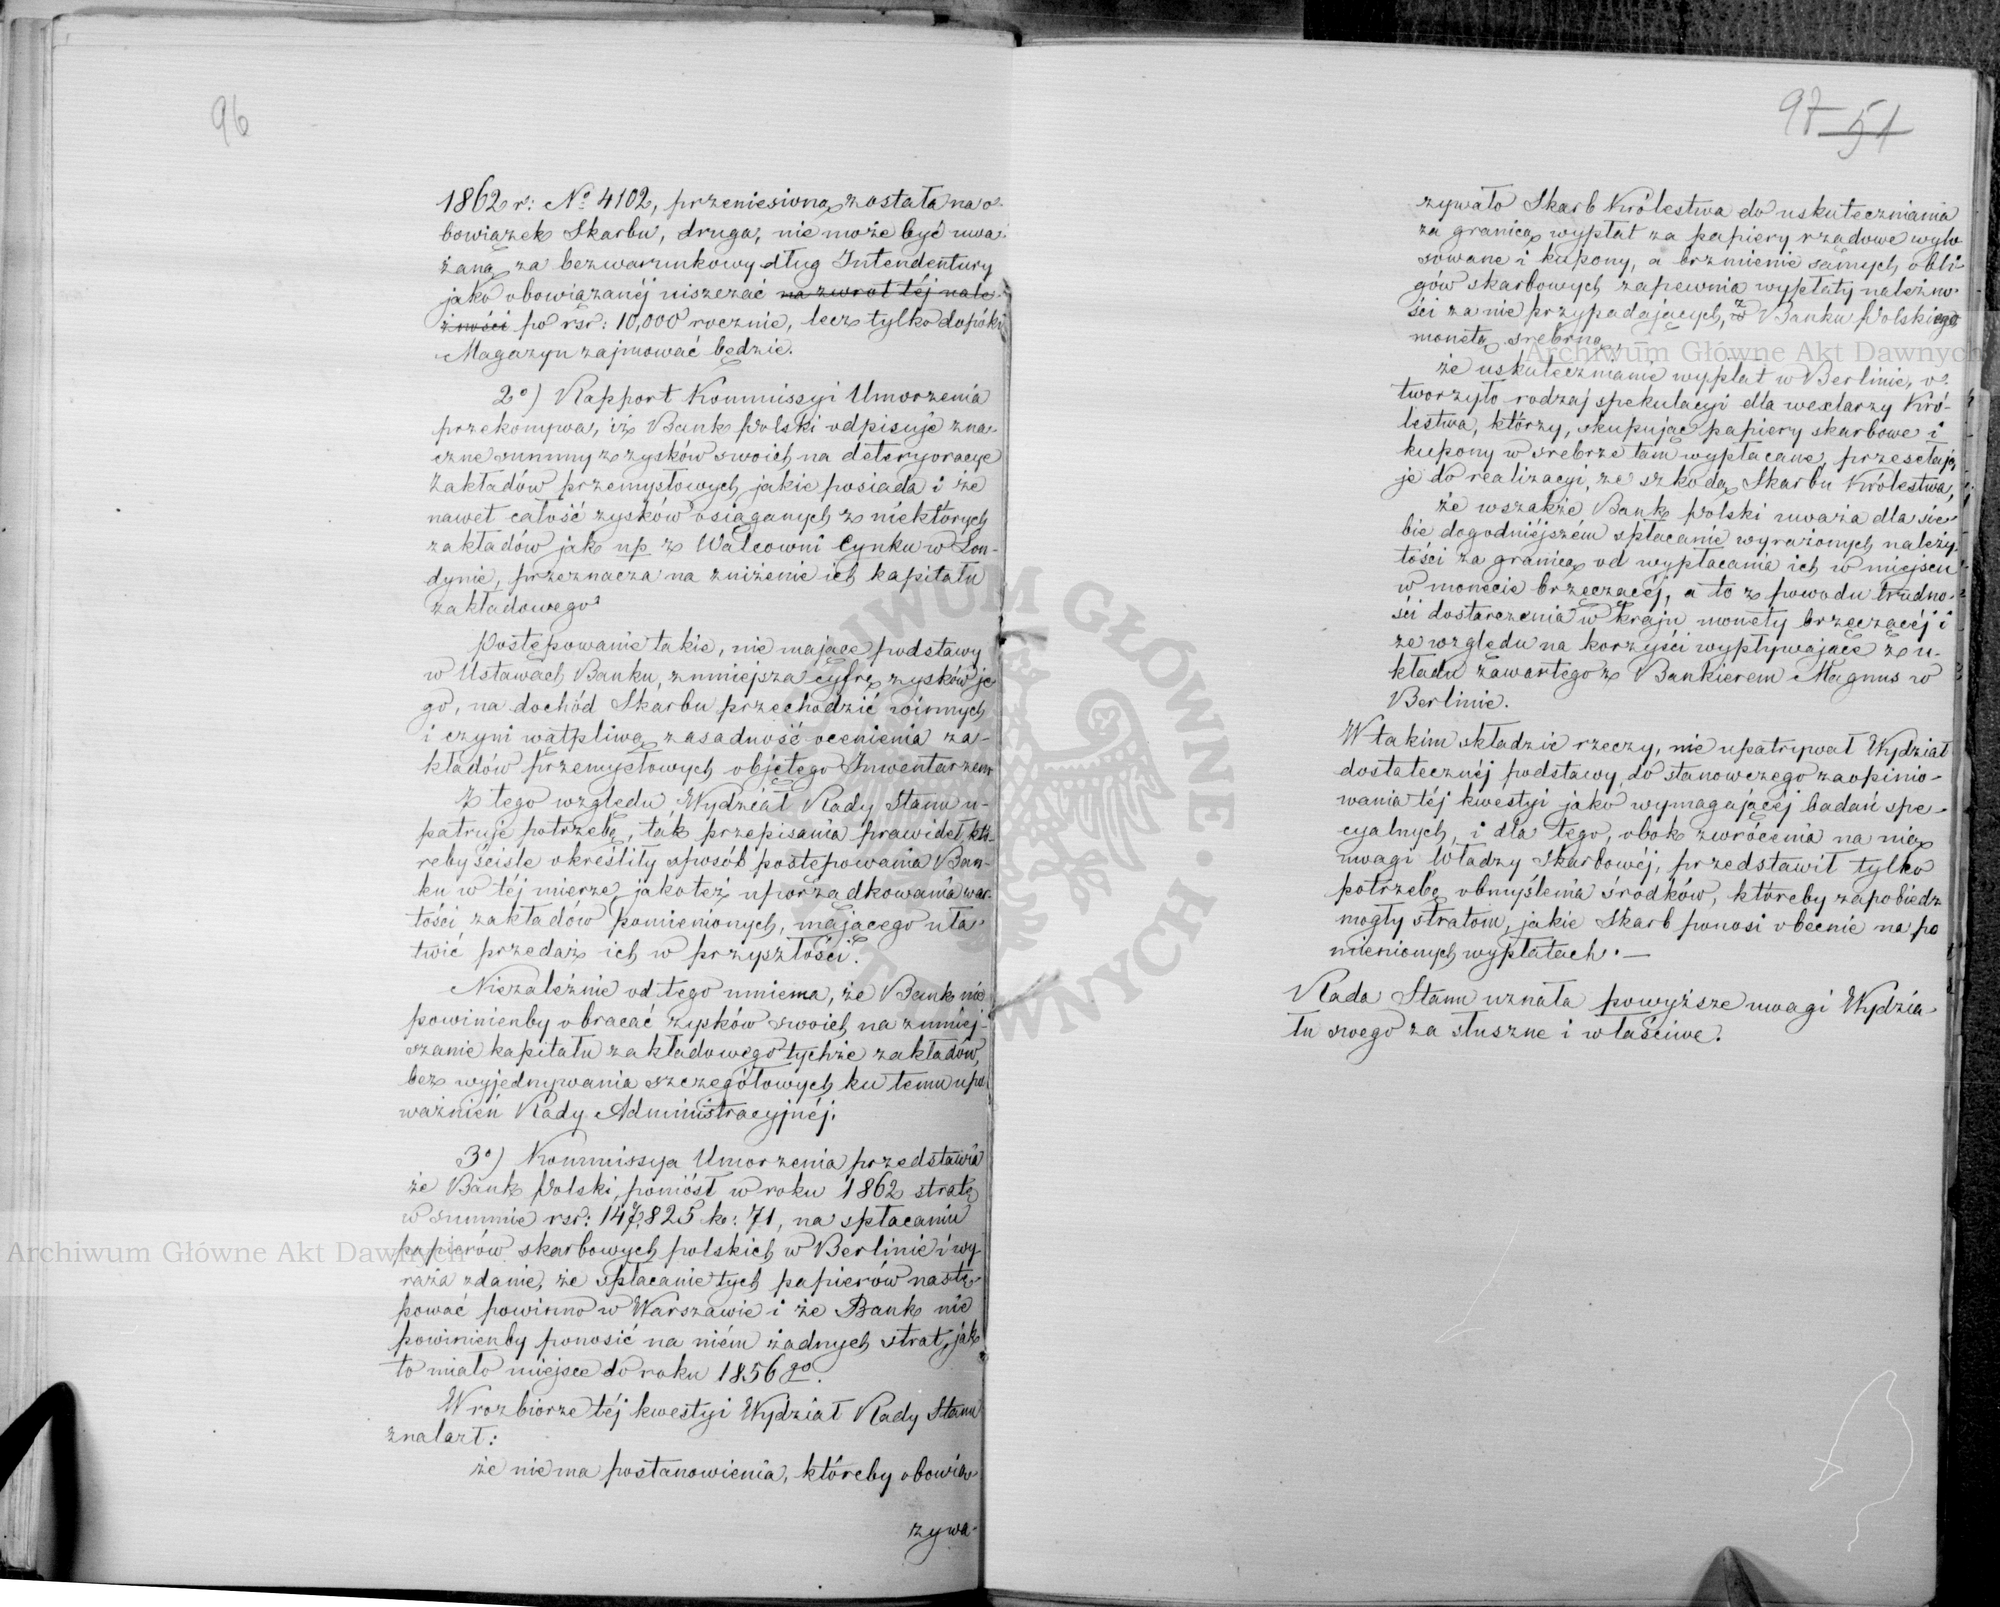 96
1862 r: No 4102, przeniesioną została na o-
bowiązek Skarbu, druga, nie może być uwa-
żaną za bezwarunkowy dług Intendentury
jako obowiązanéj uiszczać na zwrot téj nale-
żności po rsr: 10,000 rocznie, lecz tylko dopóki
Magazyn zajmować będzie.
2o) Rapport Kommissyi Umorzenia
przekonywa, iż Bank Polski odpisuje zna-
czne summy z zysków swoich na deteryoracye
Zakładów przemysłowych jakie posiada i że
nawet całość zysków osiąganych z niektórych
zakładów jak np z Walcowni Cynku w Lon-
dynie, przeznacza na zniżenie ich kapitału
zakładowego.
Postępowanie takie, nie mające podstawy
w Ustawach Banku, zmniejsza cyfrę zysków je
go, na dochód Skarbu przechodzić winnych
i czyni wątpliwą zasadność ocenienia za-
kładów przemysłowych objętego Inwentarzem
Z tego względu, Wydział Rady Stanu u-
patruje potrzebę, tak przepisania prawideł któ-
reby ściśle określiły sposób postępowania Ban-
ku w téj mierze, jakoteż uporządkowania war-
tości zakładów pomienionych, mającego uła-
twić przedaż ich w przyszłości.
Niezależnie od tego mniema, że Bank nie
powinienby obracać zysków swoich na zmniej-
szanie kapitału zakładowego tychże zakładów,
bez wyjednywania szczegółowych ku temu upo-
ważnień Rady Administracyjnéj.
3o) Kommissya Umorzenia przedstawia
że Bank Polski, poniósł w roku 1862 stratę
w summie rsr: 147,825 k: 71, na spłacaniu
papierów skarbowych polskich w Berlinie i wy-
raża zdanie, że spłacanie tych papierów nastę-
pować powinno w Warszawie i że Bank nie
powinienby ponosić na niém żadnych strat, jak
to miało miejsce do roku 1856 go.
W rozbiorze téj kwestyi Wydział Rady Stanu
znalazł:
że nie ma postanowienia, któreby obowią-
zywa-
97 51
zywało Skarb Królestwa do uskuteczniania
za granicą wypłat za papiery rządowe wylo
sowane i kupony, a brzmienie samych obli-
gów skarbowych zapewnia wypłaty należno-
ści za nie przypadających, z Banku Polskiego
monetą srebrną,
że uskutecznianie wypłat w Berlinie, o-
tworzyło rodzaj spekulacyi dla wexlarzy Kró-
lestwa, którzy, skupując papiery skarbowe i
kupony w srebrze tam wypłacane, przesełają
je do realizacyi, ze szkodą Skarbu Królestwa,
że wszakże Bank Polski uważa dla sie-
bie dogodniéjszém spłacanie wyrażonych należy-
tości za granicą od wypłacania ich w miejscu
w monecie brzęczącéj, a to z powodu trudno-
ści dostarczenia w kraju monety brzęczącéj i
ze względu na korzyści wypływające z u-
kładu zawartego z Bankierem Magnus w
Berlinie.
W takim składzie rzeczy, nie upatrywał Wydział
dostatecznéj podstawy do stanowczego zaopinio-
wania téj kwestyi jako wymagającéj badań spe-
cyalnych, i dla tego, obok zwrócenia na nią
uwagi Władzy Skarbowéj, przedstawił tylko
potrzebę obmyślenia środków, któreby zapobiedz
mogły stratom, jakie Skarb ponosi obecnie na po
mienionych wypłatach. —
Rada Stanu uznała powyższe uwagi Wydzia-
łu swego za słuszne i właściwe.
Archiwum Główne Akt Dawnych
Archiwum Główne Akt Dawnych